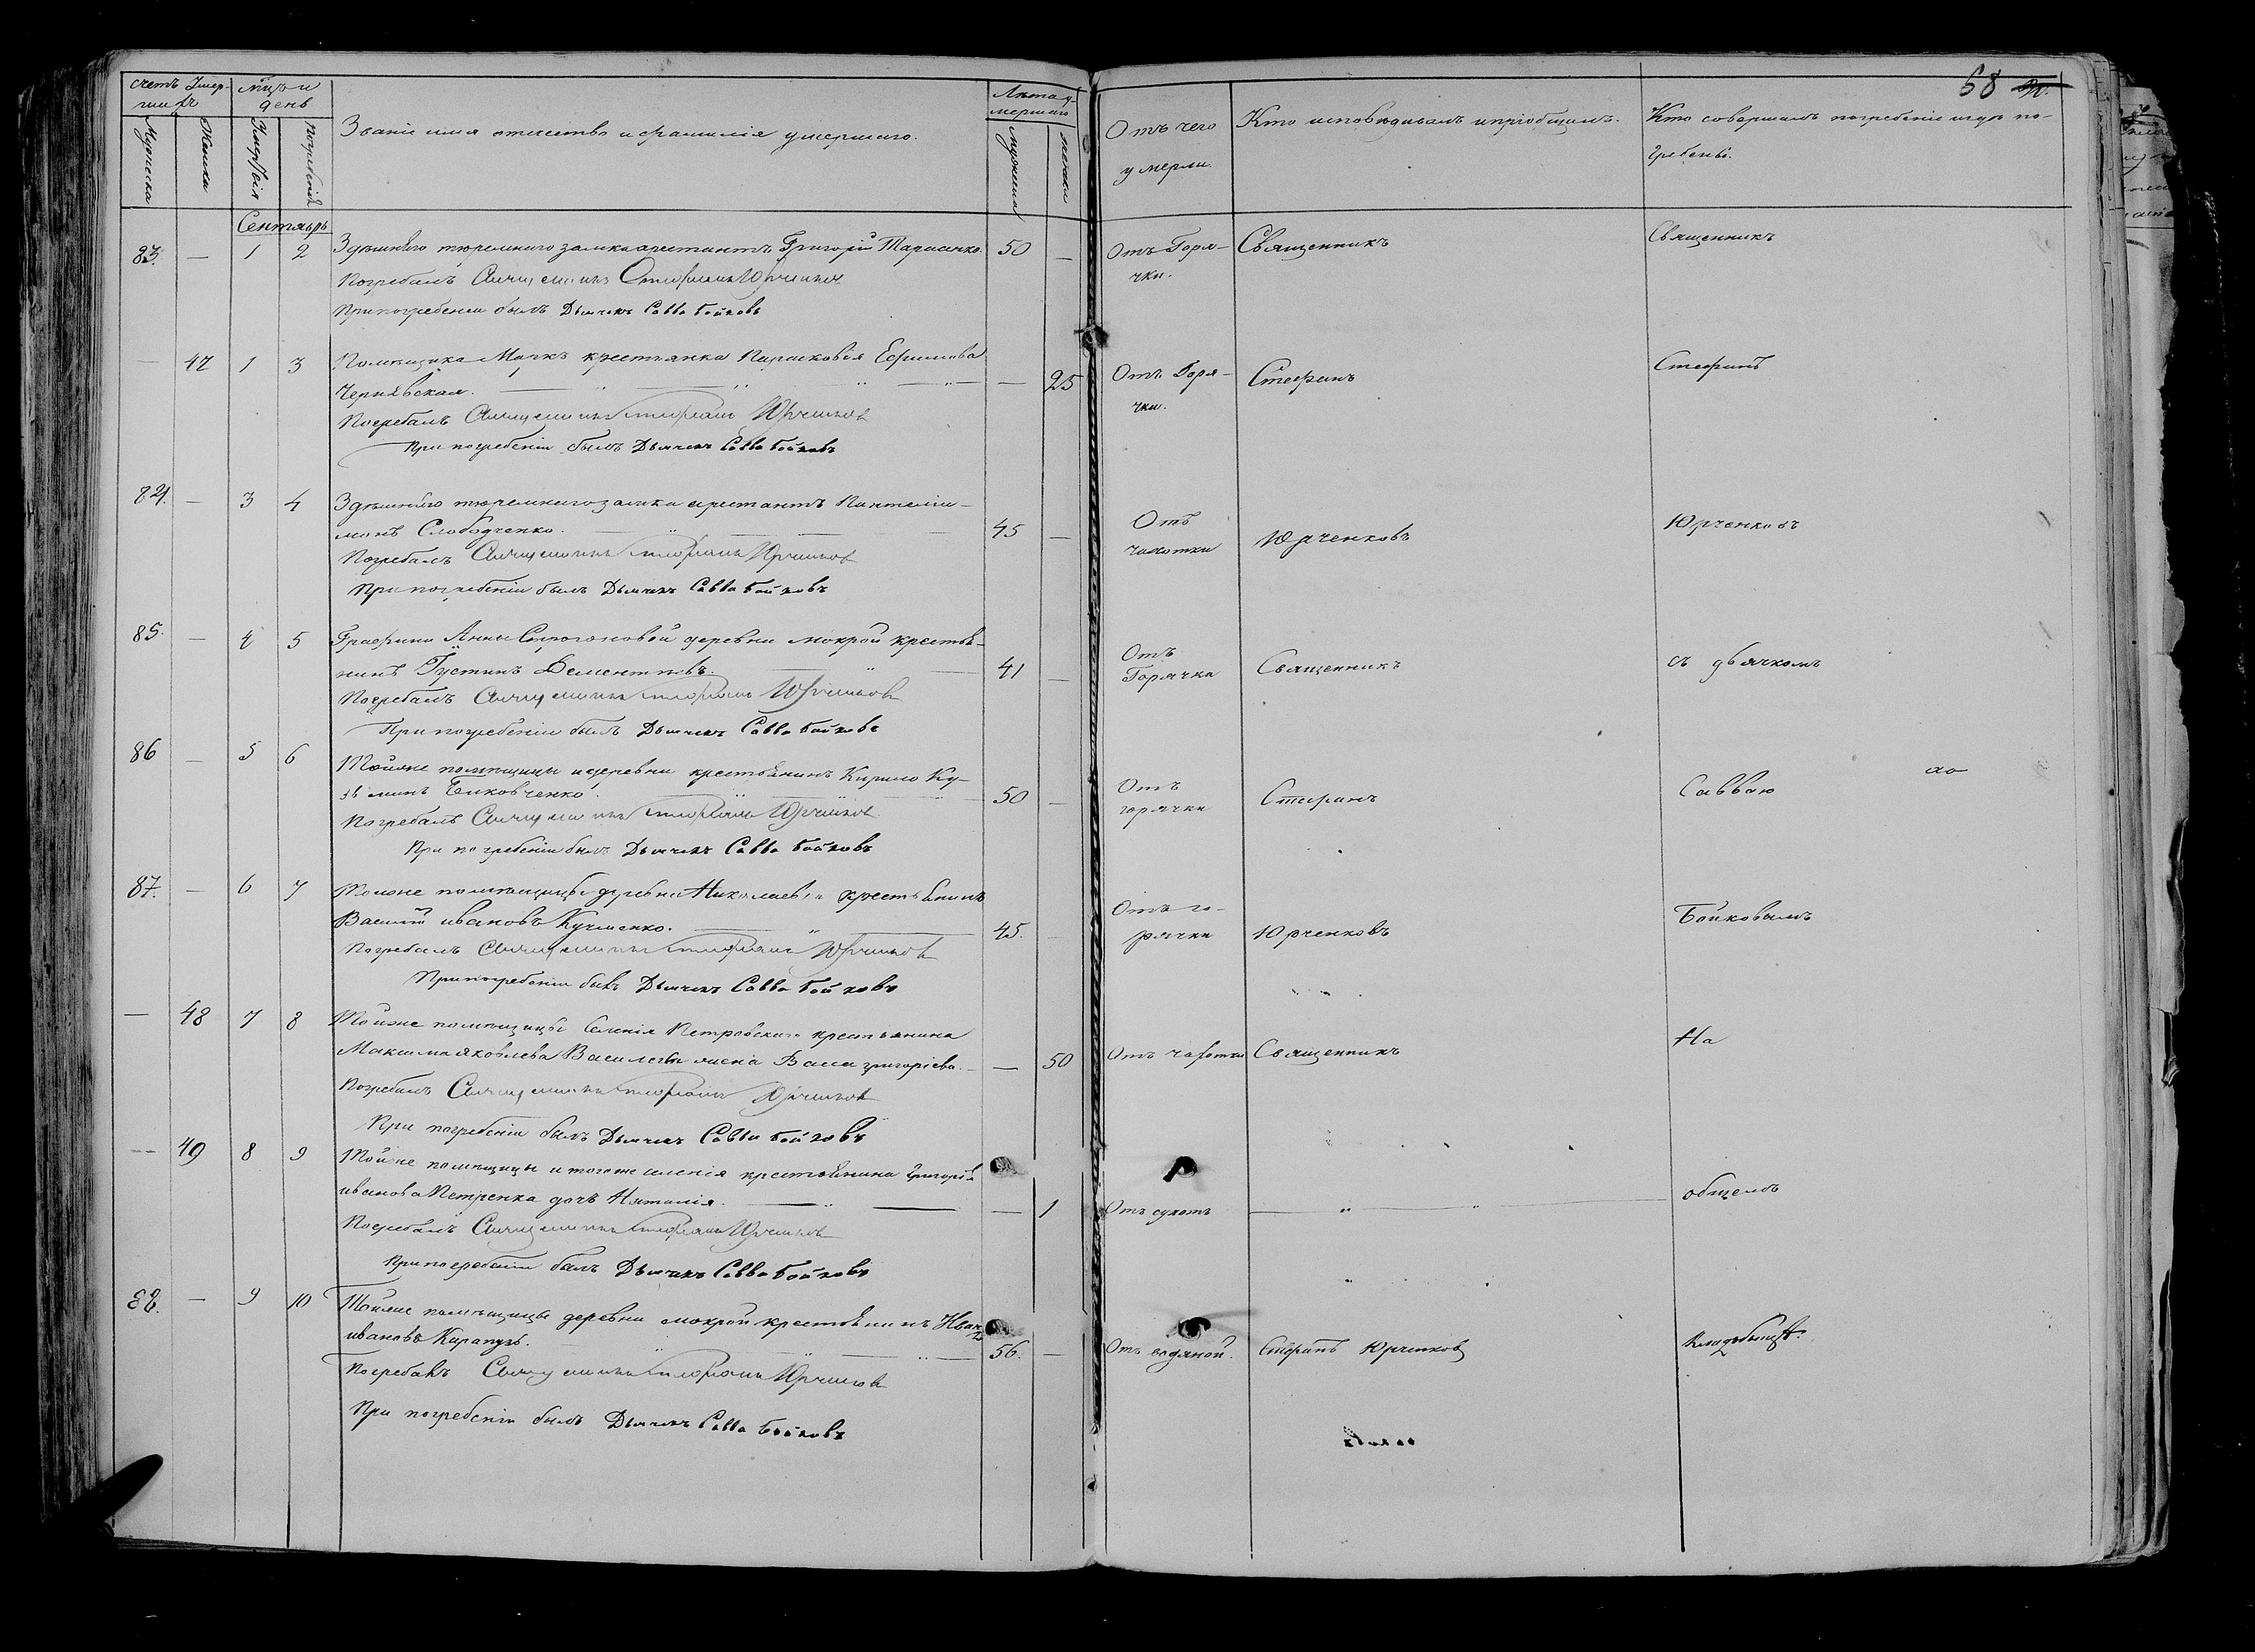 68
счетъ Умер-
шихъ
мцъ и
день
Званіе имя отчество и фамилія умершаго.
Лѣта у-
мершаго
Отъ чего
умерли.
Кто исповѣдывалъ и пріобщалъ.
Кто совершалъ погребеніе и гдѣ по-
гребены.
Мужеска
Женска
Умертвія
Погребенія
мужеска
женска
Сентябрь
83. — 1 2 Здѣшняго тюремнаго замка арестантъ Григорій Тарасенко. 50 — Отъ Горя- Священникъ Священникъ
чки.
Погребалъ Священникъ Стефанъ Юрченков
При погребеніи былъ Дьячекъ Савва Бойковъ
— 47 1 3 Помѣщика крестьянка Парасковія Ефимова
Чернявская. — 25 Отъ Горя- Стефанъ Стефанъ
чки.
Погребалъ Священникъ Стефанъ Юрченков
При погребеніи былъ Дьячекъ Савва Бойковъ
84. — 3 4 Здѣшняго тюремнаго замка арестантъ Пантелій-
монъ Слободченко. 45 — Отъ Юрченковъ Юрченковъ
чахотки
Погребалъ Священникъ Стефанъ Юрченков
При погребеніи былъ Дьячекъ Савва Бойковъ
85. — 4 5 Графини Анны Строгоновой деревни мокрой крестья-
нинъ Густинъ Дементіевъ. 41 — Отъ Священникъ съ дьячкомъ
Горячки
Погребалъ Священникъ Стефанъ Юрченков
При погребеніи былъ Дьячекъ Савва Бойковъ
86 — 5 6 Тойже помѣщицы и деревни крестьянинъ Кирило Ку-
зминъ 50 — Отъ Стефанъ Саввою
горячки
Погребалъ Священникъ Стефанъ Юрченков
При погребеніи былъ Дьячекъ Савва Бойковъ
87. — 6 7 Тойже помѣщицы деревни Николаевки крестьянинъ
Василій ивановъ Кучменко. 45. Отъ го- Юрченковъ Бойковымъ
рячки
Погребалъ Священникъ Стефанъ Юрченков
При погребеніи былъ Дьячекъ Савва Бойковъ
— 48 7 8 Тойже помѣщицы Селенія Петровскаго крестьянина
Максима яковлева жена григоріева. — 50 Отъ чахотки Священникъ На
Погребалъ Священникъ Стефанъ Юрченков
При погребеніи былъ Дьячекъ Савва Бойковъ
— 49 8 9 Тойже помѣщицы и тогоже селенія крестьянина Григорія
иванова Петренка дочь Наталія. — 1 Отъ сухотъ общемъ
Погребалъ Священникъ Стефанъ Юрченков
При погребеніи былъ Дьячекъ Савва Бойковъ
88. — 9 10 Тойже помѣщицы деревни мокрой крестьянинъ Иванъ
ивановъ Карапузъ. 56. — Отъ водяной. Стефанъ Юрченковъ Кладбищѣ.
Погребалъ Священникъ Стефанъ Юрченков
При погребеніи былъ Дьячекъ Савва Бойковъ